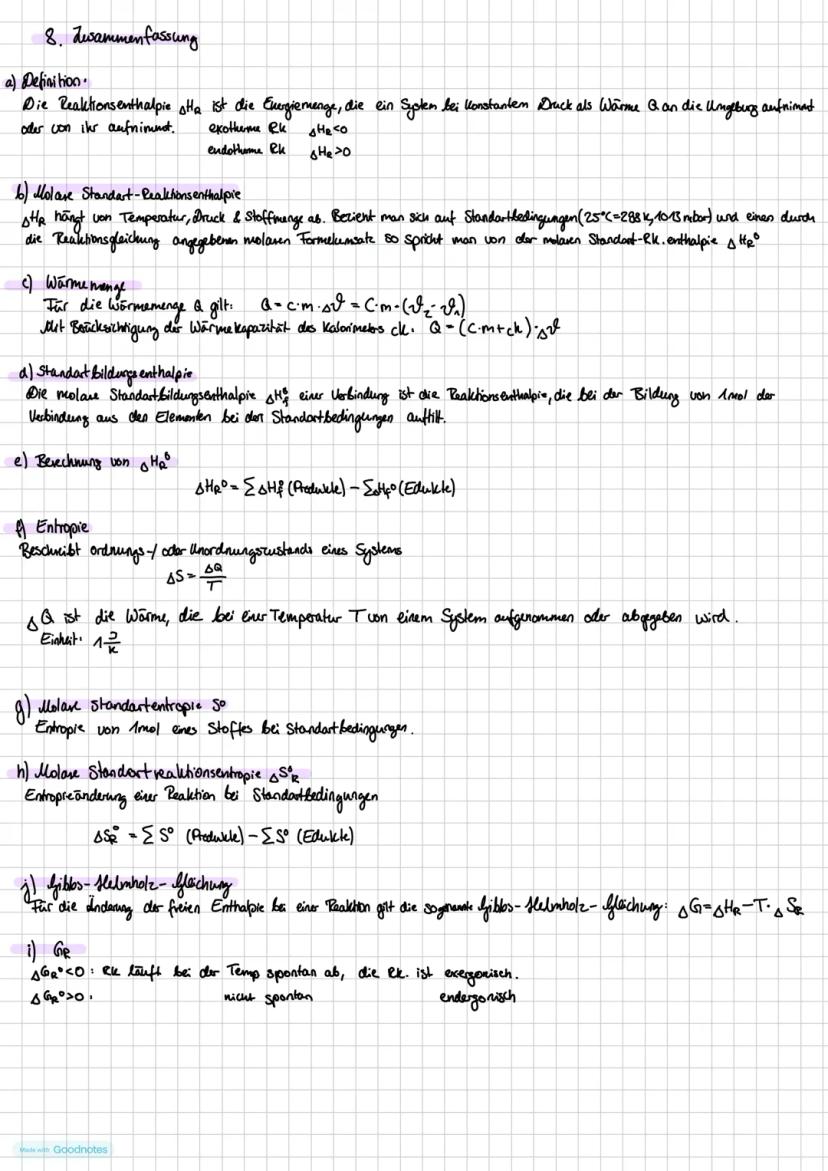 8. Zusammenfassung
a) Definition:
Die Reaktionsenthalpie ΔHR ist die Energiemenge, die ein System bei konstantem Druck als Wärme Q an die Umgebung aufnimmt
oder von ihr aufnimmt. exotherme Rk ΔHR<0
endotherme Rk ΔHR>0
b) Molare Standart-Reaktionsenthalpie
ΔHR hängt von Temperatur, Druck & Stoffmenge ab. Bezieht man sich auf Standartbedingungen (25°C=288K, 1013 mbar) und einen durch
die Reaktionsgleichung angegebenen molaren Formelumsatz so spricht man von der molaren Standart-Rk.enthalpie ΔHR⁰
c) Wärmemenge
Für die Wärmemenge Q gilt: Q = c·m·Δϑ = C·m·(ϑ₂-ϑ₁)
Mit Berücksichtigung der Wärmekapazität des Kalorimeters ck. Q = (C·m+ck)·Δϑ
d) Standartbildungsenthalpie
Die molare Standartbildungsenthalpie ΔHf⁰ einer Verbindung ist die Reaktionsenthalpie, die bei der Bildung von 1mol der
Verbindung aus den Elementen bei den Standartbedingungen auftritt.
e) Berechnung von ΔHR⁰
ΔHR⁰ = ΣΔHf⁰ (Produkte) - ΣΔHf⁰ (Edukte)
f) Entropie
Beschreibt ordnungs-/ oder Unordnungszustands eines Systems
ΔS = ΔQ/T
ΔQ ist die Wärme, die bei einer Temperatur T von einem System aufgenommen oder abgegeben wird.
Einheit: 1 J/K
g) Molare Standartentropie S⁰
Entropie von 1mol eines Stoffes bei Standartbedingungen.
h) Molare Standartreaktionsentropie ΔS⁰R
Entropieänderung einer Reaktion bei Standartbedingungen
ΔSR⁰ = Σ S⁰ (Produkte) - Σ S⁰ (Edukte)
j) Gibbs-Helmholz-Gleichung
Für die Änderung der freien Enthalpie bei einer Reaktion gilt die sogenannte Gibbs-Helmholz-Gleichung: ΔG=ΔHR-T·ΔSR
i) GR
ΔGR⁰<0: Rk läuft bei der Temp spontan ab, die Rk. ist exergonisch.
ΔGR⁰>0: nicht spontan endergonisch
Made with Goodnotes